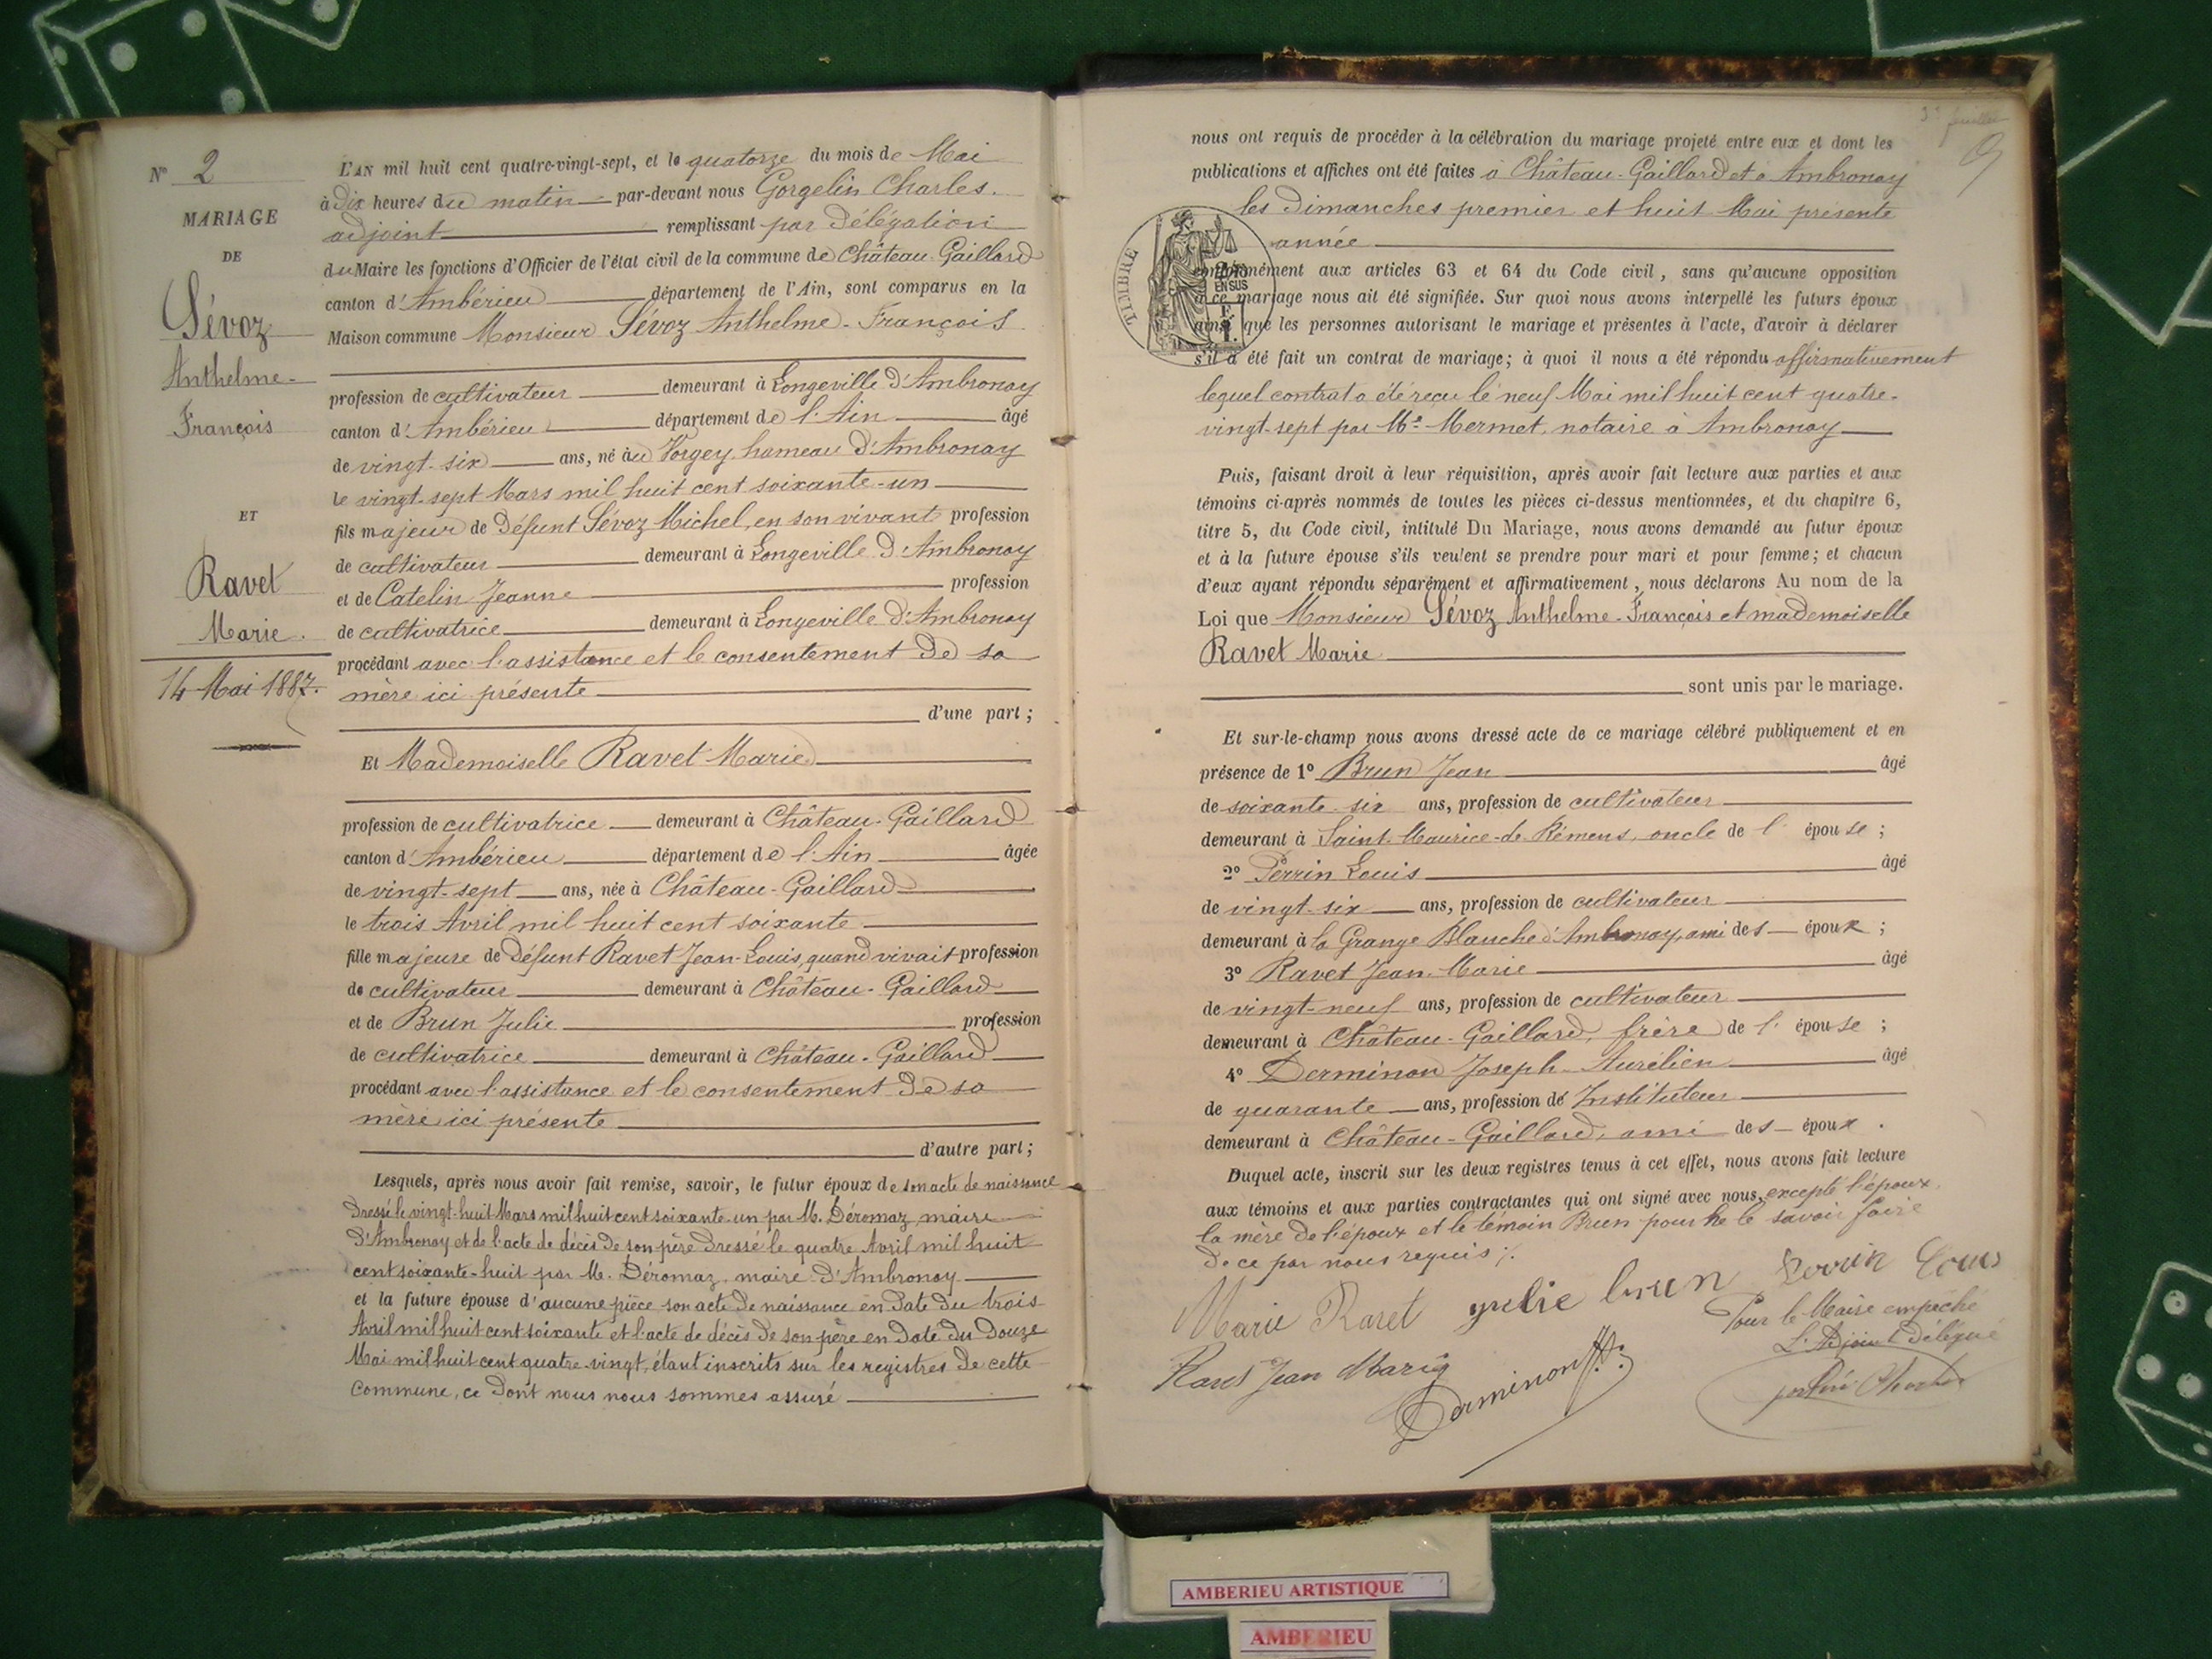 N° 2
MARIAGE
DE
Sévoz
Anthelme-
François
ET
Ravet
Marie.
14 Mai 1887.
L'AN mil huit cent quatre-vingt-sept, et le quatorze du mois de Mai
à dix heures du matin par-devant nous Gorgelin Charles.
adjoint remplissant par délégation
du Maire les fonctions d'Officier de l'état civil de la commune de Château-Gaillard
canton d'Ambérieu département de l'Ain, sont comparus en la
Maison commune Monsieur Sévoz Anthelme-François
profession de cultivateur demeurant à Longeville d'Ambronay
canton d'Ambérieu département de l'Ain âgé
de vingt-six ans, né au Vorgey hameau d'Ambronay
le vingt-sept Mars mil huit cent soixante-un
fils majeur de défunt Sévoz Michel, en son vivant profession
de cultivateur demeurant à Longeville d'Ambronay
et de Catelin Jeanne profession
de cultivatrice demeurant à Longeville d'Ambronay
procédant avec l'assistance et le consentement de sa
mère ici présente
d'une part;
Et Mademoiselle Ravet Marie
profession de cultivatrice demeurant à Château-Gaillard
canton d'Ambérieu département de l'Ain âgée
de vingt-sept ans, née à Château-Gaillard
le trois Avril mil huit cent soixante
fille majeure de défunt Ravet Jean-Louis, quand vivait profession
de cultivateur demeurant à Château-Gaillard
et de Brun Julie profession
de cultivatrice demeurant à Château-Gaillard
procédant avec l'assistance et le consentement de sa
mère ici présente
d'autre part;
Lesquels, après nous avoir fait remise, savoir, le futur époux de son acte de naissance
dressé le vingt-huit Mars mil huit cent soixante-un par M. Déromaz, maire
d'Ambronay et de l'acte de décès de son père dressé le quatre Avril mil huit
cent soixante-huit par M. Déromaz, maire d'Ambronay
et la future épouse d'aucune pièce son acte de naissance en date du trois
Avril mil huit cent soixante et l'acte de décès de son père en date du douze
Mai mil huit cent quatre-vingt, étant inscrits sur les registres de cette
commune, ce dont nous nous sommes assuré
3e feuillet
nous ont requis de procéder à la célébration du mariage projeté entre eux et dont les
publications et affiches ont été faites à Château-Gaillard et à Ambronay
les dimanches premier et huit Mai présente
année
TIMBRE
EN SUS
conformément aux articles 63 et 64 du Code civil, sans qu'aucune opposition
à ce mariage nous ait été signifiée. Sur quoi nous avons interpellé les futurs époux
ainsi que les personnes autorisant le mariage et présentes à l'acte, d'avoir à déclarer
s'il a été fait un contrat de mariage; à quoi il nous a été répondu affirmativement
lequel contrat a été reçu le neuf Mai mil huit cent quatre-
vingt-sept par Me Mermet, notaire à Ambronay
Puis, faisant droit à leur réquisition, après avoir fait lecture aux parties et aux
témoins ci-après nommés de toutes les pièces ci-dessus mentionnées, et du chapitre 6,
titre 5, du Code civil, intitulé Du Mariage, nous avons demandé au futur époux
et à la future épouse s'ils veulent se prendre pour mari et pour femme; et chacun
d'eux ayant répondu séparément et affirmativement, nous déclarons Au nom de la
Loi que Monsieur Sévoz Anthelme-François et mademoiselle
Ravet Marie
sont unis par le mariage.
Et sur-le-champ nous avons dressé acte de ce mariage célébré publiquement et en
présence de 1° Brun Jean âgé
de soixante-six ans, profession de cultivateur
demeurant à Saint-Maurice-de-Rémens, oncle de l'épouse;
2° Perrin Louis âgé
de vingt-six ans, profession de cultivateur
demeurant à la Grange Blanche d'Ambronay, ami des époux;
3° Ravet Jean-Marie âgé
de vingt-neuf ans, profession de cultivateur
demeurant à Château-Gaillard, frère de l'épouse;
4° Derminon Joseph-Aurélien âgé
de quarante ans, profession de Instituteur
demeurant à Château-Gaillard, ami des époux.
Duquel acte, inscrit sur les deux registres tenus à cet effet, nous avons fait lecture
aux témoins et aux parties contractantes qui ont signé avec nous, excepté l'époux,
la mère de l'époux et le témoin Brun pour ne le savoir faire
de ce par nous requis;.
Marie Ravet julie brun Perrin Louis
Pour le Maire empêché
L'Adjoint délégué
Ravet Jean Marie
Derminon
AMBERIEU ARTISTIQUE
AMBERIEU